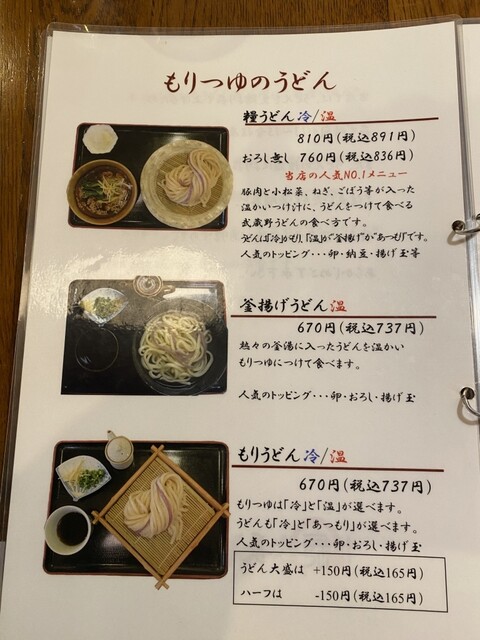 もりつゆのうどん
糧うどん 冷/温
810円(税込891円)
おろし無し 760円(税込836円)
当店の人気NO.1メニュー
豚肉と小松菜、ねぎ、ごぼう等が入った
温かいつけ汁に、うどんをつけて食べる
武蔵野うどんの食べ方です。
うどんは「冷」がもり、「温」が釜揚げか「あつもり」です。
人気のトッピング・・・卵・納豆・揚げ玉等
釜揚げうどん 温
670円(税込737円)
熱々の釜湯に入ったうどんを温かい
もりつゆにつけて食べます。
人気のトッピング・・・卵・おろし・揚げ玉
もりうどん 冷/温
670円(税込737円)
もりつゆは「冷」と「温」が選べます。
うどんも「冷」と「あつもり」が選べます。
人気のトッピング・・・卵・おろし・揚げ玉
うどん大盛は +150円(税込165円)
ハーフは -150円(税込165円)